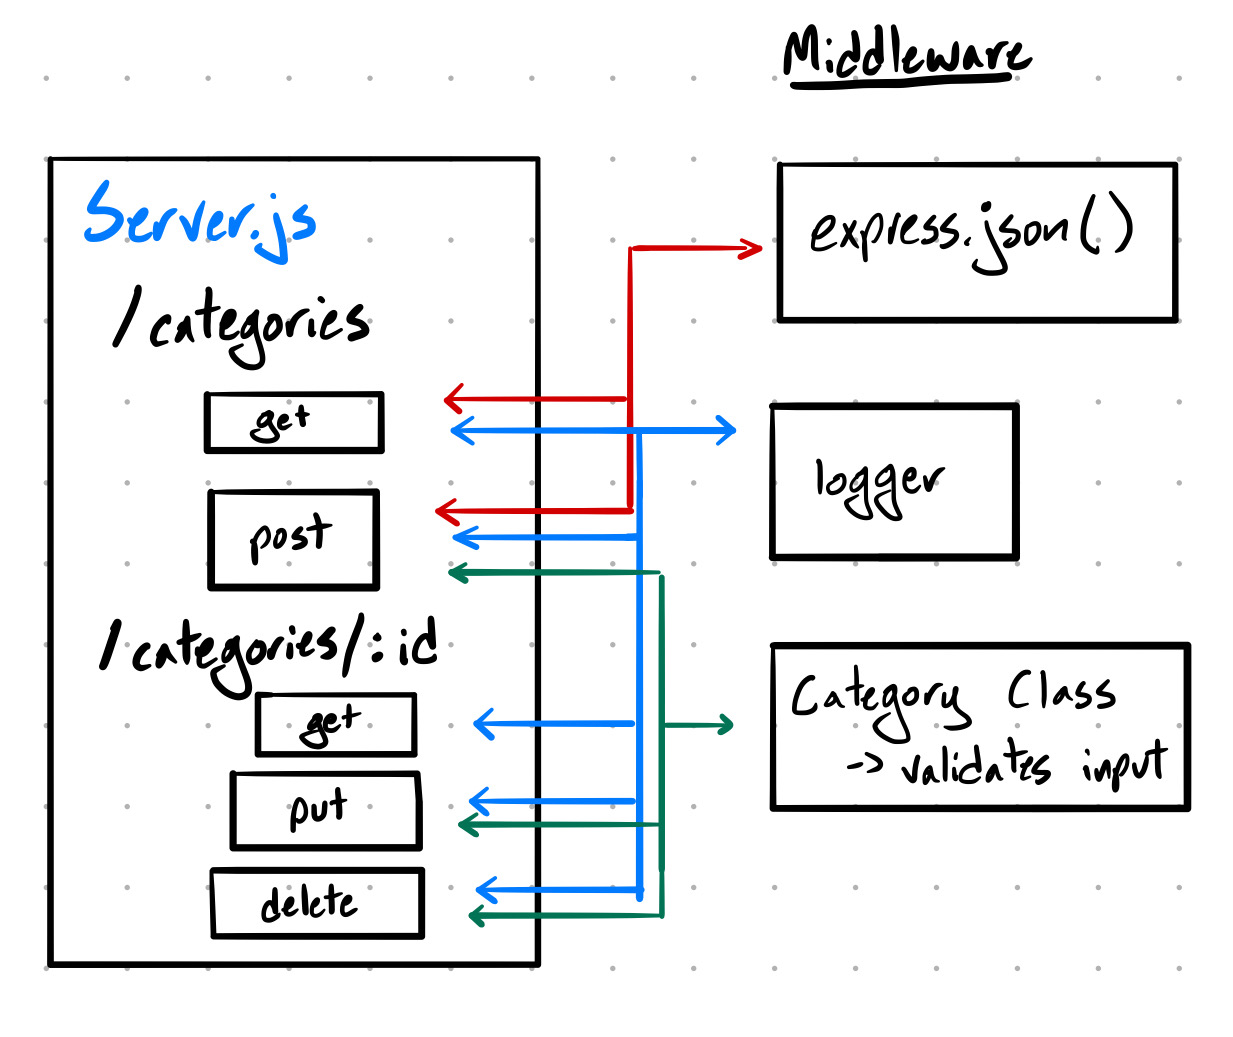 Middleware
Server.js
/categories
get
post
/categories/:id
get
put
delete
express.json()
logger
Category Class
-> validates input